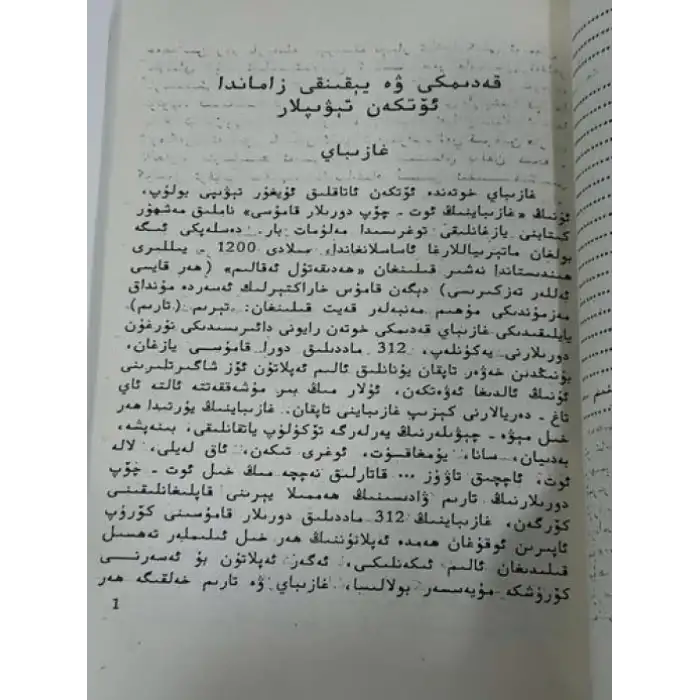 قەدىمكى ۋە يېقىنقى زاماندا
ئۆتكەن تېۋىپلار
غازىباي
غازىباي خوتەندە ئۆتكەن ئاتاقلىق ئۇيغۇر تېۋىپى بولۇپ،
ئۇنىڭ «غازىباينىڭ ئوت - چۆپ دورىلار قامۇسى» ناملىق مەشھۇر
كىتابنى يازغانلىقى توغرىسىدا مەلۇمات بار. دەسلەپكى ئىگە
بولغان ماتېرىياللارغا ئاساسلانغاندا، مىلادى 1200 - يىللىرى
ھىندىستاندا نەشىر قىلىنغان «ھەدىقەتۇل ئەقالىم» (ھەر قايسى
ئەللەر تەزكىرىسى) دېگەن قامۇس خاراكتېرلىك ئەسەردە مۇنداق
مەزمۇندىكى مۇھىم مەنبەلەر قەيت قىلىنغان: تېرىم (تارىم)
يايلىقىدىكى غازىباي قەدىمكى خوتەن رايونى دائىرىسىدىكى نۇرغۇن
دورىلارنى يەكۈنلەپ، 312 ماددىلىق دورا قامۇسى يازغان،
بۇنىڭدىن خەۋەر تاپقان يۇنانلىق ئالىم ئەپلاتۇن ئۆز شاگىرتلىرىنى
ئۇنىڭ ئالدىغا ئەۋەتكەن، ئۇلار مىڭ بىر مۇشەققەتتە ئالتە ئاي
تاغ - دەريالارنى كېزىپ غازىباينى تاپقان. غازىباينىڭ يۇرتىدا ھەر
خىل مېۋە - چېۋىلەرنىڭ يەرلەرگە تۆكۈلۈپ ياتقانلىقى، بىنەپشە،
بەدىيان، سانا، يۇمغاقسۇت، ئوغرى تىكەن، ئاق لەيلى، لالە
ئوت، ئاچچىق تاۋۇز ... قاتارلىق نەچچە مىڭ خىل ئوت - چۆپ
دورىلارنىڭ تارىم ۋادىسىنىڭ ھەممىلا يېرىنى قاپلىغانلىقىنى
كۆرگەن، غازىباينىڭ 312 ماددىلىق دورىلار قامۇسىنى كۆرۈپ
ئاپىرىن ئوقۇغان ھەمدە ئەپلاتۇننىڭ ھەر خىل ئىلىملەر تەھسىل
قىلىدىغان ئالىم ئىكەنلىكى، ئەگەر ئەپلاتۇن بۇ ئەسەرنى
كۆرۈشكە مۇيەسسەر بولالىسا، غازىباي ۋە تارىم خەلقىگە ھەر
1